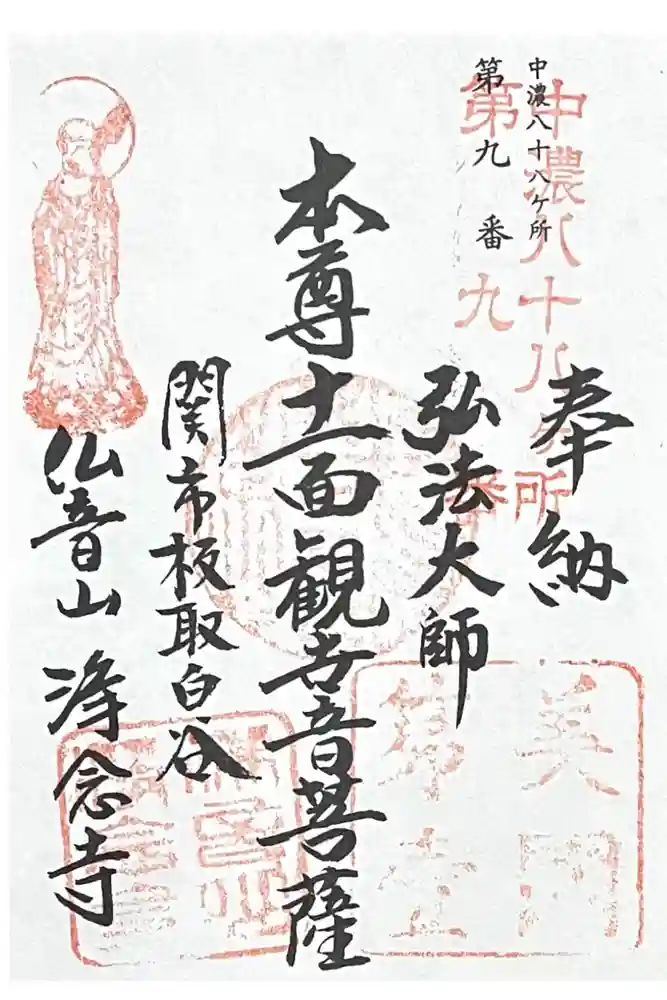 中濃八十八ケ所
第九番
中濃八十八ケ所
第九番
奉納
弘法大師
本尊十一面観世音菩薩
関市板取白谷
仏音山 浄念寺